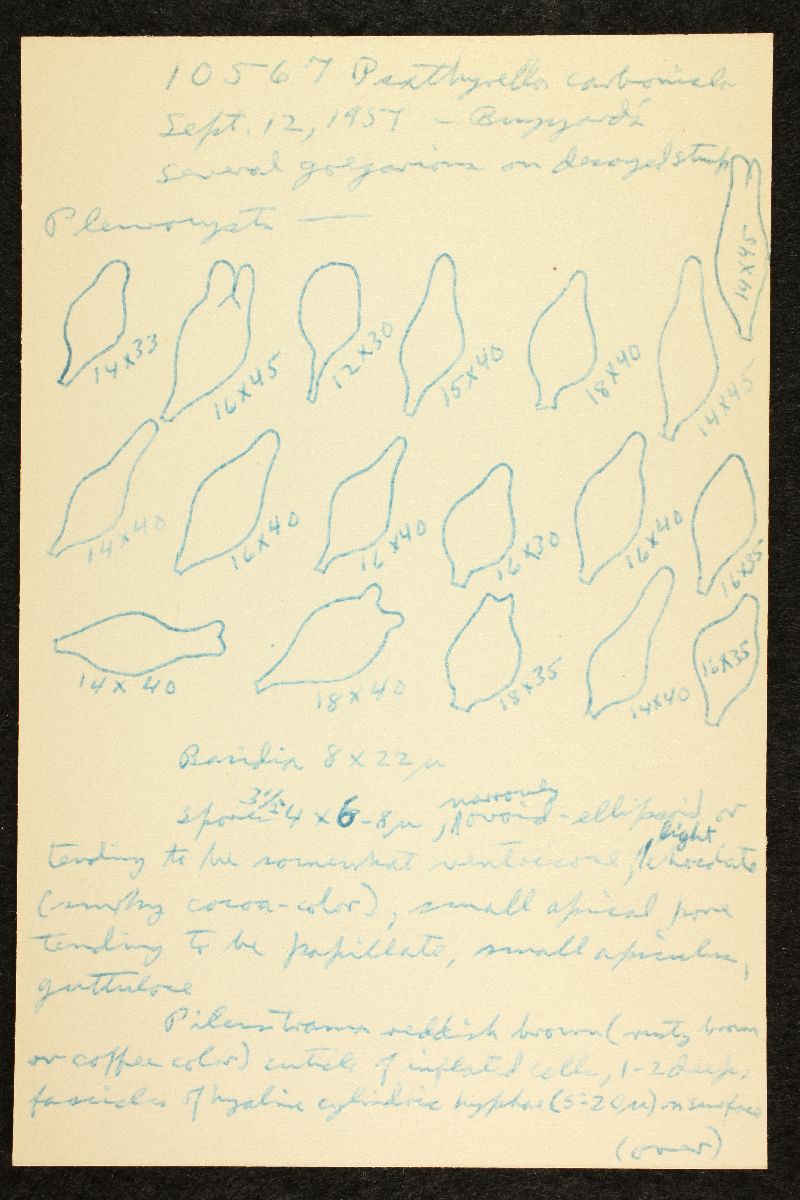 10567 Psathyrella carbonicola
Sept. 12, 1957 -
several gregarious on decayed stump
Pleurocysts —
14x45
14x33
16x45
12x30
15x40
18x40
14x45
14x40
16x40
16x40
16x30
16x40
16x35
14x40
18x40
18x35
14x40
16x35
Basidia 8x22µ
3½ narrowly
Spores 4 x 6-8µ, ovoid-ellipsoid or
light
tending to be somewhat ventricose, chocolate
(smoky cocoa-color), small apical pore
tending to be papillate, small apiculus,
guttulose
Pileus trama reddish brown (rusty brown
or coffee color) cuticle of inflated cells, 1-2 deep,
fascicles of hyaline cylindric hyphae (5-20µ) on surface
(over)